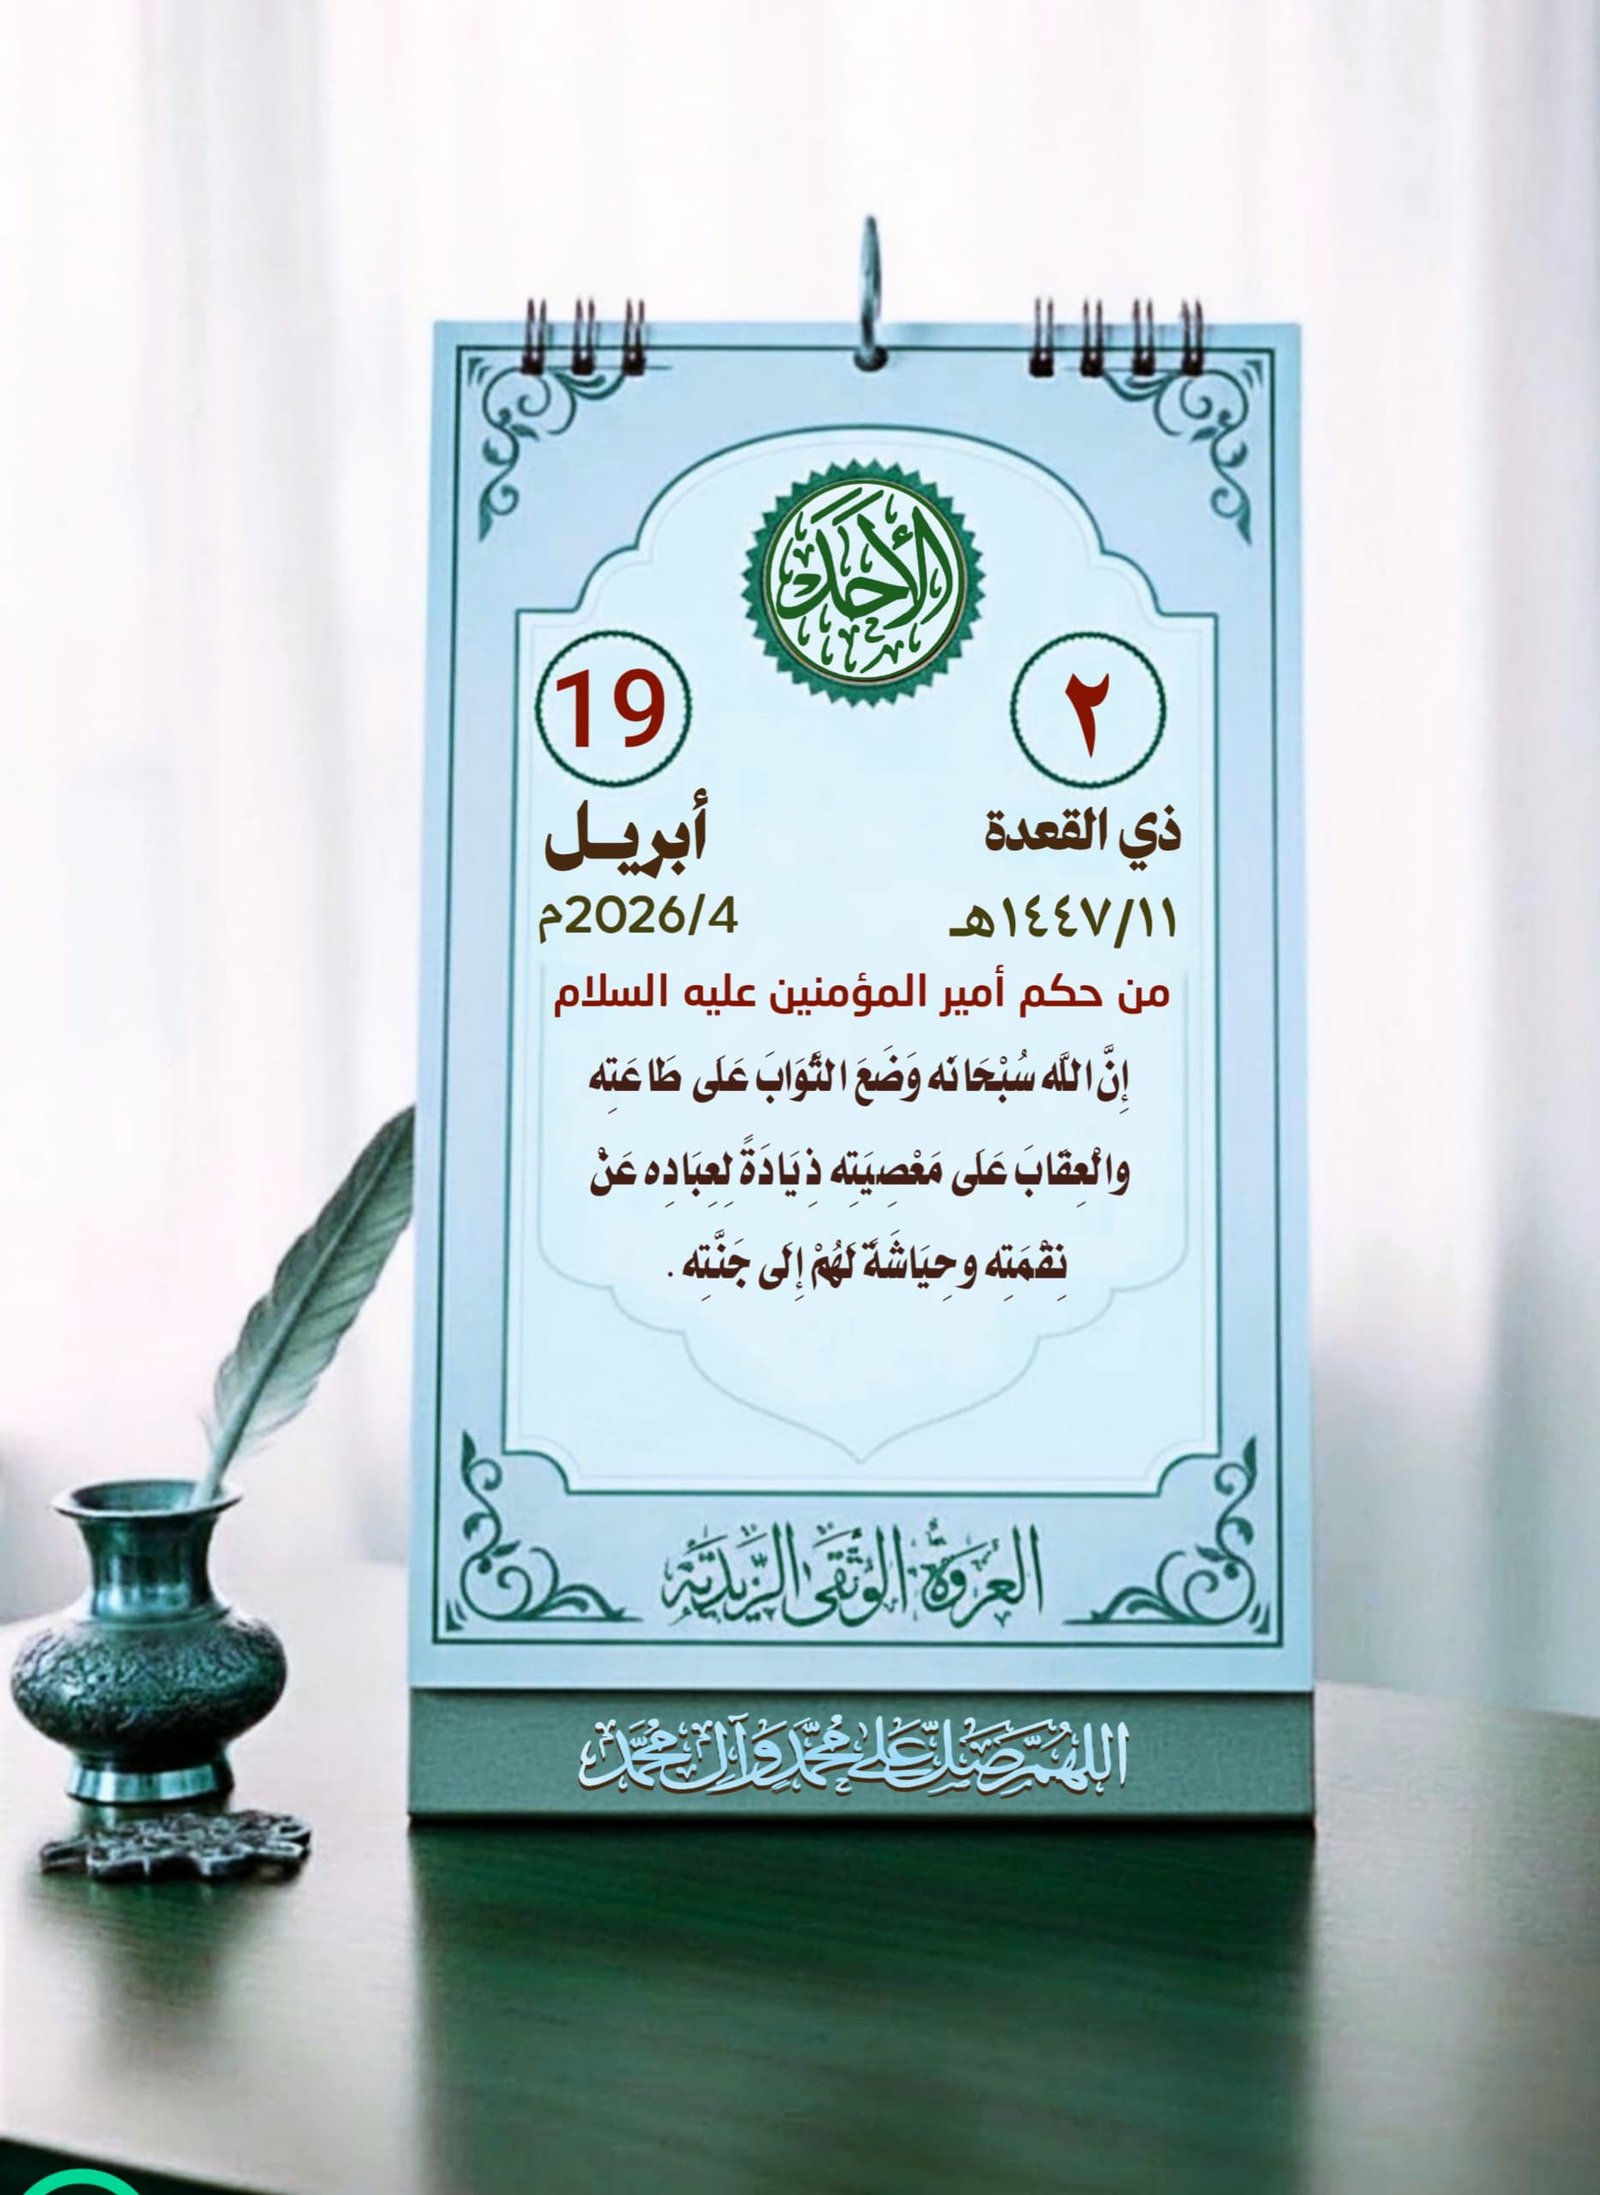 الأحد
٢
19
ذي القعدة
أبريل
١٤٤٧/١١هـ
2026/4م
من حكم أمير المؤمنين عليه السلام
إِنَّ اللَّه سُبْحَانَه وَضَعَ الثَّوَابَ عَلَى طَاعَتِه
والْعِقَابَ عَلَى مَعْصِيَتِه ذِيَادَةً لِعِبَادِه عَنْ
نِقْمَتِه وحِيَاشَةً لَهُمْ إِلَى جَنَّتِه .
العروة الوثقى الزيدية
اللهم صل على محمد وآل محمد